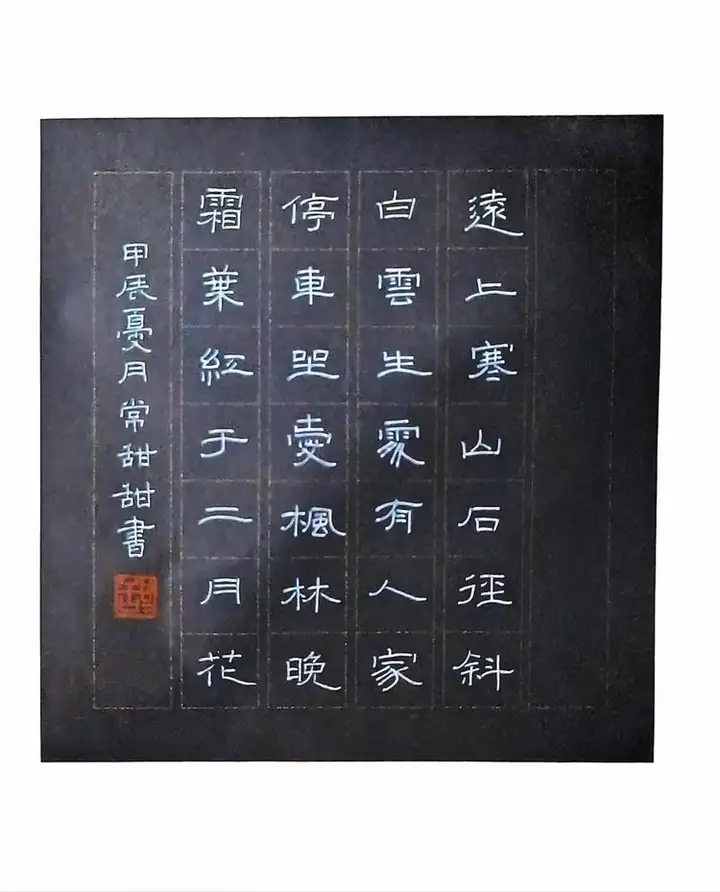 遠上寒山石徑斜
白雲生處有人家
停車坐愛楓林晚
霜葉紅于二月花
甲辰夏月常甜甜書